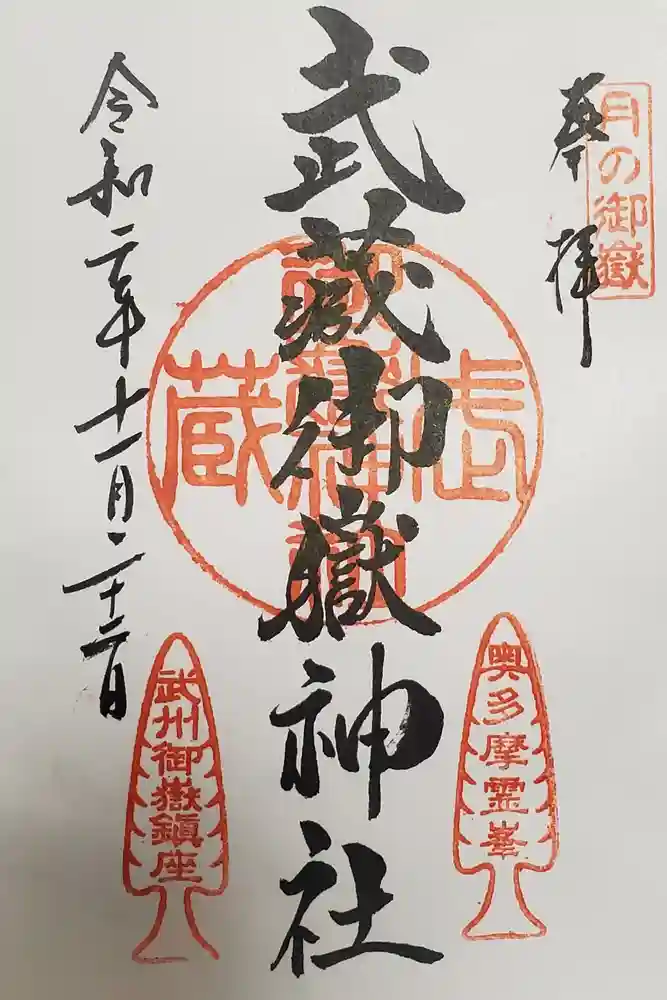 月の御嶽
奉拝
奥多摩霊峯
武蔵御嶽神社
武
蔵
令和二年十一月二十二日
武州御嶽鎮座